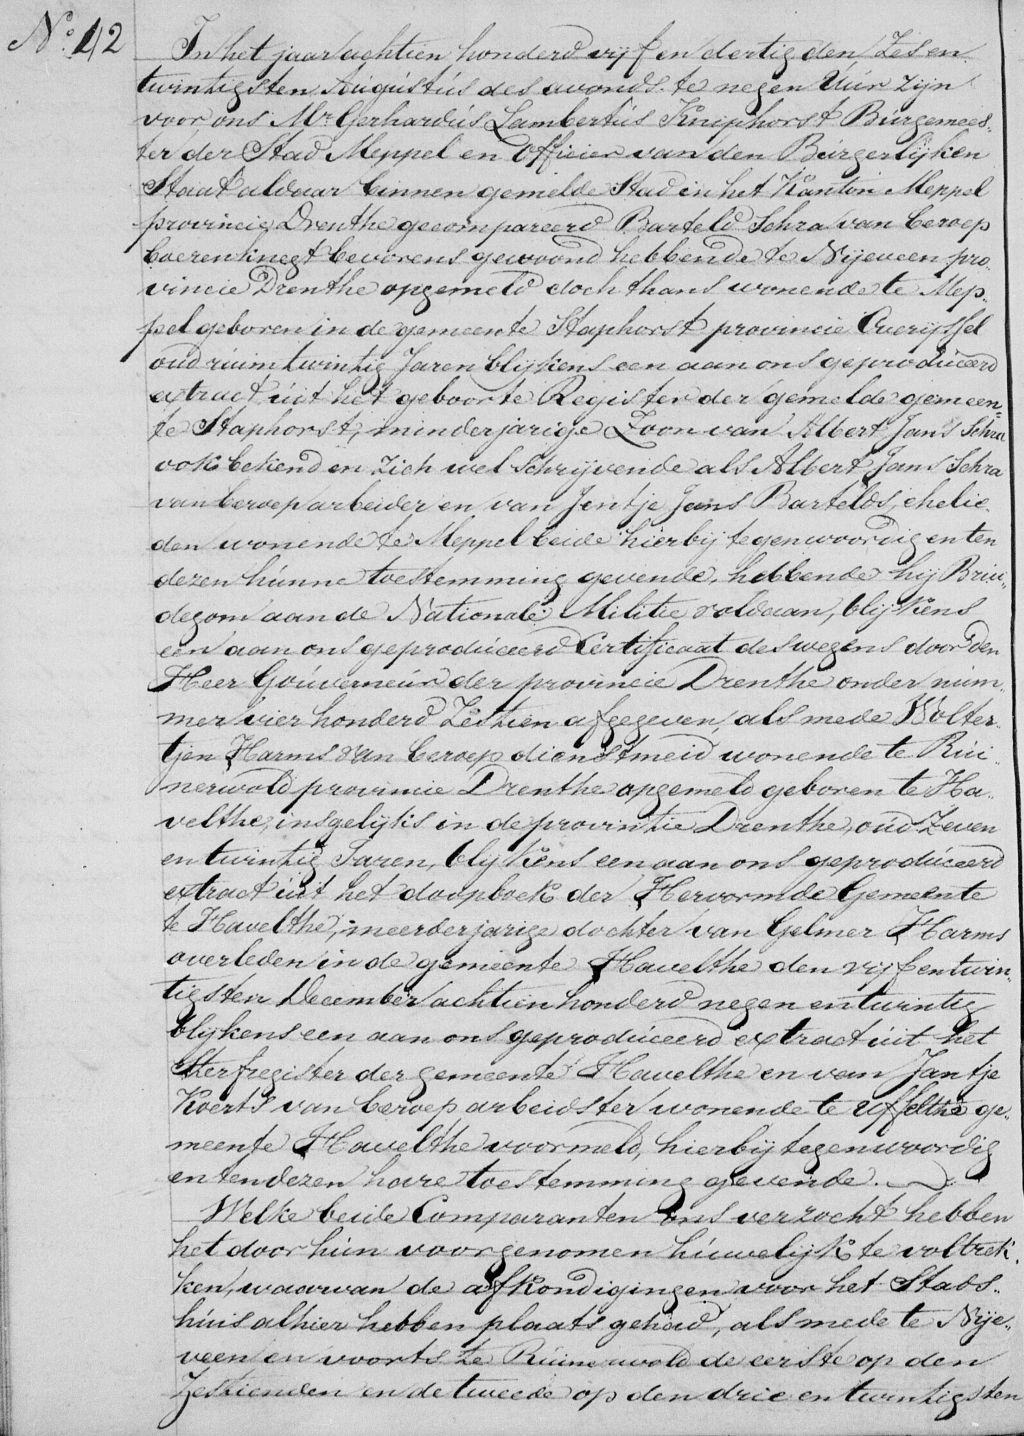 No. 42
In het jaar achtien honderd vijf en dertig den Zes en
twintigsten Augustus des avonds te negen Uur zijn
voor ons Mr. Gerhardus Lambertus Kniphorst Burgemees-
ter der Stad Meppel en Officier van den Burgerlijken
Staat aldaar binnen gemelde Stad in het Kanton Meppel
provincie Drenthe gecompareerd Barteld Schra van beroep
boerenknegt bevorens gewoond hebbende te Nijeveen pro-
vincie Drenthe opgemeld doch thans wonende te Mep-
pel geboren in de gemeente Staphorst provincie Overijssel
oud ruim twintig Jaren blijkens een aan ons geproduceerd
extract uit het geboorte Register der gemelde gemeen-
te Staphorst, minderjarige Zoon van Albert Jans Schra
ook bekend en zich wel schrijvende als Albert Jans Schra
van beroep arbeider en van Jentje Jans Bartelds, ehelie-
den wonende te Meppel beide hierbij tegenwoordig en ten
dezen hunne toestemming gevende, hebbende hij Brui-
degom aan de Nationale Militie voldaan, blijkens
een aan ons geproduceerd Certificaat deswegens door den
Heer Gouverneur der provincie Drenthe onder num-
mer vier honderd Zestien afgegeven, als mede Wolter-
tjen Harms van beroep dienstmeid wonende te Rui-
nerwold provincie Drenthe opgemeld geboren te Ha-
velthe, insgelijks in de provintie Drenthe, oud Zeven
en twintig Jaren, blijkens een aan ons geproduceerd
extract uit het doopboek der Hervormde Gemeente
te Havelthe, meerderjarige dochter van Gelmer Harms
overleden in de gemeente Havelthe den vijf en twin-
tigsten December achtien honderd negen en twintig
blijkens een aan ons geproduceerd extract uit het
Sterfregister der gemeente Havelthe en van Jantje
Koerts van beroep arbeidster wonende te Uffelthe ge-
meente Havelthe voormeld, hierbij tegenwoordig
en ten dezen hare toestemming gevende.
Welke beide Comparanten ons verzocht hebben
het door hun voorgenomen huwelijk te voltrek-
ken, waarvan de afkondigingen voor het Stads-
huis alhier hebben plaats gehad, als mede te Nije-
veen en voorts te Ruinerwold de eerste op den
Zestienden en de tweede op den drie en twintigsten